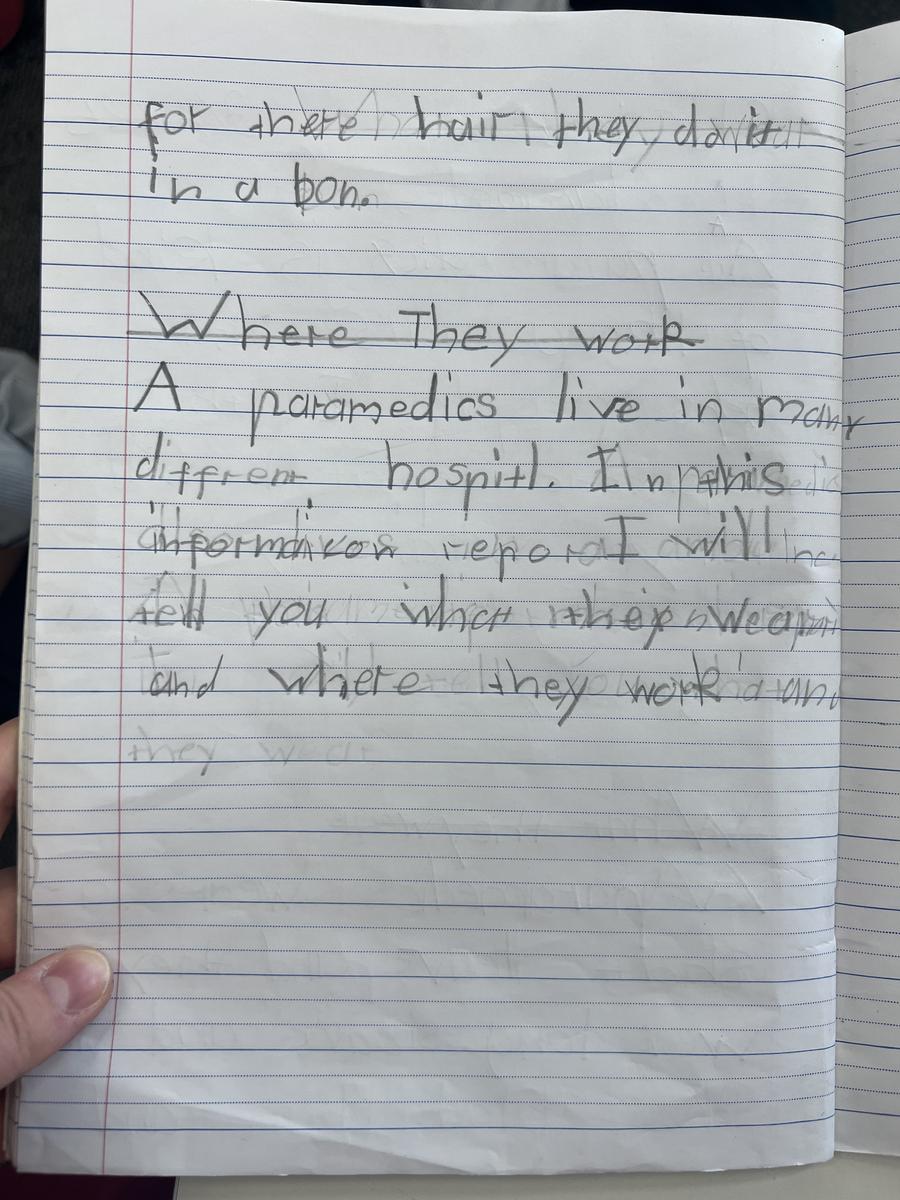 for there hair they do it
in a bon.
Where They work
A paramedics live in many
diffrent hospitl. In this
informaicon repor I will
tell you what they wear
and where they work and
they wear